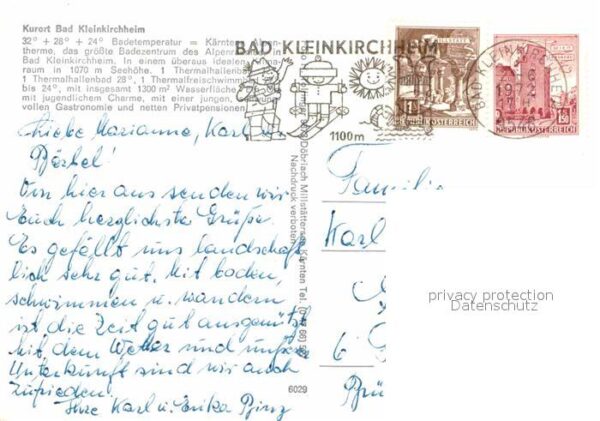 Kurort Bad Kleinkirchheim
32° + 28° + 24° Badetemperatur = Kärntens Alpen-
therme, das größte Badezentrum des Alpenraumes in
Bad Kleinkirchheim. In einem überaus idealen Klima-
raum in 1070 m Seehöhe. 1 Thermalhallenbad
1 Thermalhallenbad 28°, 1 Thermalfreischwimmbad
bis 24°, mit insgesamt 1300 m² Wasserfläche
mit jugendlichem Charme, mit einer jungen,
vollen Gastronomie und netten Privatpensionen.
BAD KLEINKIRCHHEIM
1100 m
MILLSTATT
1
REPUBLIK ÖSTERREICH
BAD KLEINKIRCHHEIM
1972
1.50
REPUBLIK ÖSTERREICH
Liebe Marianne, Karl u.
Bärbel!
Von hier aus senden wir
Euch herzlichste Grüße.
Es gefällt uns landschaft-
lich sehr gut. Mit baden,
schwimmen u. wandern
ist die Zeit gut ausgenützt
Mit dem Wetter und unserer
Unterkunft sind wir auch
zufrieden.
Ihre Karl u. Erika
Döbriach Millstättersee, Kärnten Tel.
Nachdruck verboten
6029
Familie
Karl
6
privacy protection
Datenschutz